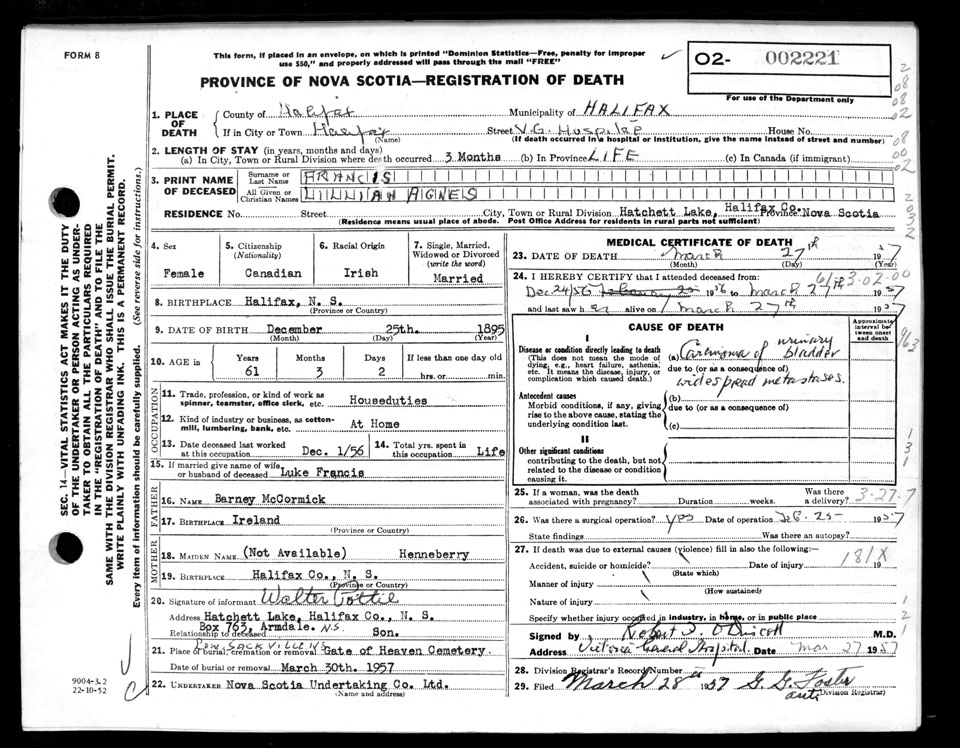 FORM 8
This form, if placed in an envelope, on which is printed "Dominion Statistics—Free, penalty for improper
use $50," and properly addressed will pass through the mail "FREE"
02- 002221
For use of the Department only
PROVINCE OF NOVA SCOTIA—REGISTRATION OF DEATH
SEC. 14—VITAL STATISTICS ACT MAKES IT THE DUTY
OF THE UNDERTAKER OR PERSON ACTING AS UNDER-
TAKER TO OBTAIN ALL THE PARTICULARS REQUIRED
IN THE "REGISTRATION OF DEATH" AND TO FILE THE
SAME WITH THE DIVISION REGISTRAR WHO SHALL ISSUE THE BURIAL PERMIT.
WRITE PLAINLY WITH UNFADING INK. THIS IS A PERMANENT RECORD.
Every item of information should be carefully supplied. (See reverse side for instructions.)
1. PLACE OF DEATH
County of Halifax Municipality of HALIFAX
If in City or Town Halifax Street V.G. Hospital House No.
(Name) (If death occurred in a hospital or institution, give the name instead of street and number)
2. LENGTH OF STAY (in years, months and days)
(a) In City, Town or Rural Division where death occurred 3 Months (b) In Province LIFE (c) In Canada (if immigrant)
3. PRINT NAME OF DECEASED
Surname or Last Name FRANCIS
All Given or Christian Names LILLIAN AGNES
RESIDENCE No. Street City, Town or Rural Division Hatchett Lake, Halifax Co. Province Nova Scotia
(Residence means usual place of abode. Post Office Address for residents in rural parts not sufficient)
4. Sex Female
5. Citizenship (Nationality) Canadian
6. Racial Origin Irish
7. Single, Married, Widowed or Divorced (write the word) Married
8. BIRTHPLACE Halifax, N. S.
(Province or Country)
9. DATE OF BIRTH December 25th. 1895
(Month) (Day) (Year)
10. AGE IN Years 61 Months 3 Days 2 If less than one day old hrs. or min.
OCCUPATION
11. Trade, profession, or kind of work as
spinner, teamster, office clerk, etc. Houseduties
12. Kind of industry or business, as cotton-
mill, lumbering, bank, etc. At Home
13. Date deceased last worked
at this occupation Dec. 1/56
14. Total yrs. spent in
this occupation Life
15. If married give name of wife
or husband of deceased Luke Francis
FATHER
16. NAME Barney McCormick
17. BIRTHPLACE Ireland
(Province or Country)
MOTHER
18. MAIDEN NAME (Not Available) Henneberry
19. BIRTHPLACE Halifax Co., N. S.
(Province or Country)
20. Signature of informant Walter
Address Hatchett Lake, Halifax Co., N. S.
Box 763, Armdale. N.S.
Relationship to deceased Son.
LOW SACKVILLE N.S.
21. Place of burial, cremation or removal Gate of Heaven Cemetery.
Date of burial or removal March 30th. 1957
22. UNDERTAKER Nova Scotia Undertaking Co. Ltd.
(Name and address)
9004-3.2
22-10-52
MEDICAL CERTIFICATE OF DEATH
23. DATE OF DEATH March 27th 1957
(Month) (Day) (Year)
24. I HEREBY CERTIFY that I attended deceased from:
Dec 24/56 February 25 1956 to March 27th 1957
and last saw her alive on March 27th 1957
61-3-02-00
CAUSE OF DEATH
Approximate interval between onset and death
I
Disease or condition directly leading to death
(This does not mean the mode of
dying, e.g., heart failure, asthenia,
etc. It means the disease, injury, or
complication which caused death.)
(a) Carcinoma of urinary bladder
due to (or as a consequence of)
widespread metastases.
Antecedent causes
Morbid conditions, if any, giving
rise to the above cause, stating the
underlying condition last.
(b)
due to (or as a consequence of)
(c)
II
Other significant conditions
contributing to the death, but not
related to the disease or condition
causing it.
25. If a woman, was the death
associated with pregnancy? Duration weeks. Was there a delivery? 3-27-7
26. Was there a surgical operation? yes Date of operation Feb. 25 1957
State findings Was there an autopsy?
27. If death was due to external causes (violence) fill in also the following:—
Accident, suicide or homicide? Date of injury 19
(State which) 181X
Manner of injury
(How sustained)
Nature of injury
Specify whether injury occurred in industry, in home, or in public place
Signed by Robert J. O'Driscoll M.D.
Address Victoria General Hospital. Date Mar 27 1957
28. Division Registrar's Record Number
29. Filed March 28th 1957 G. G. Foster
Division Registrar)